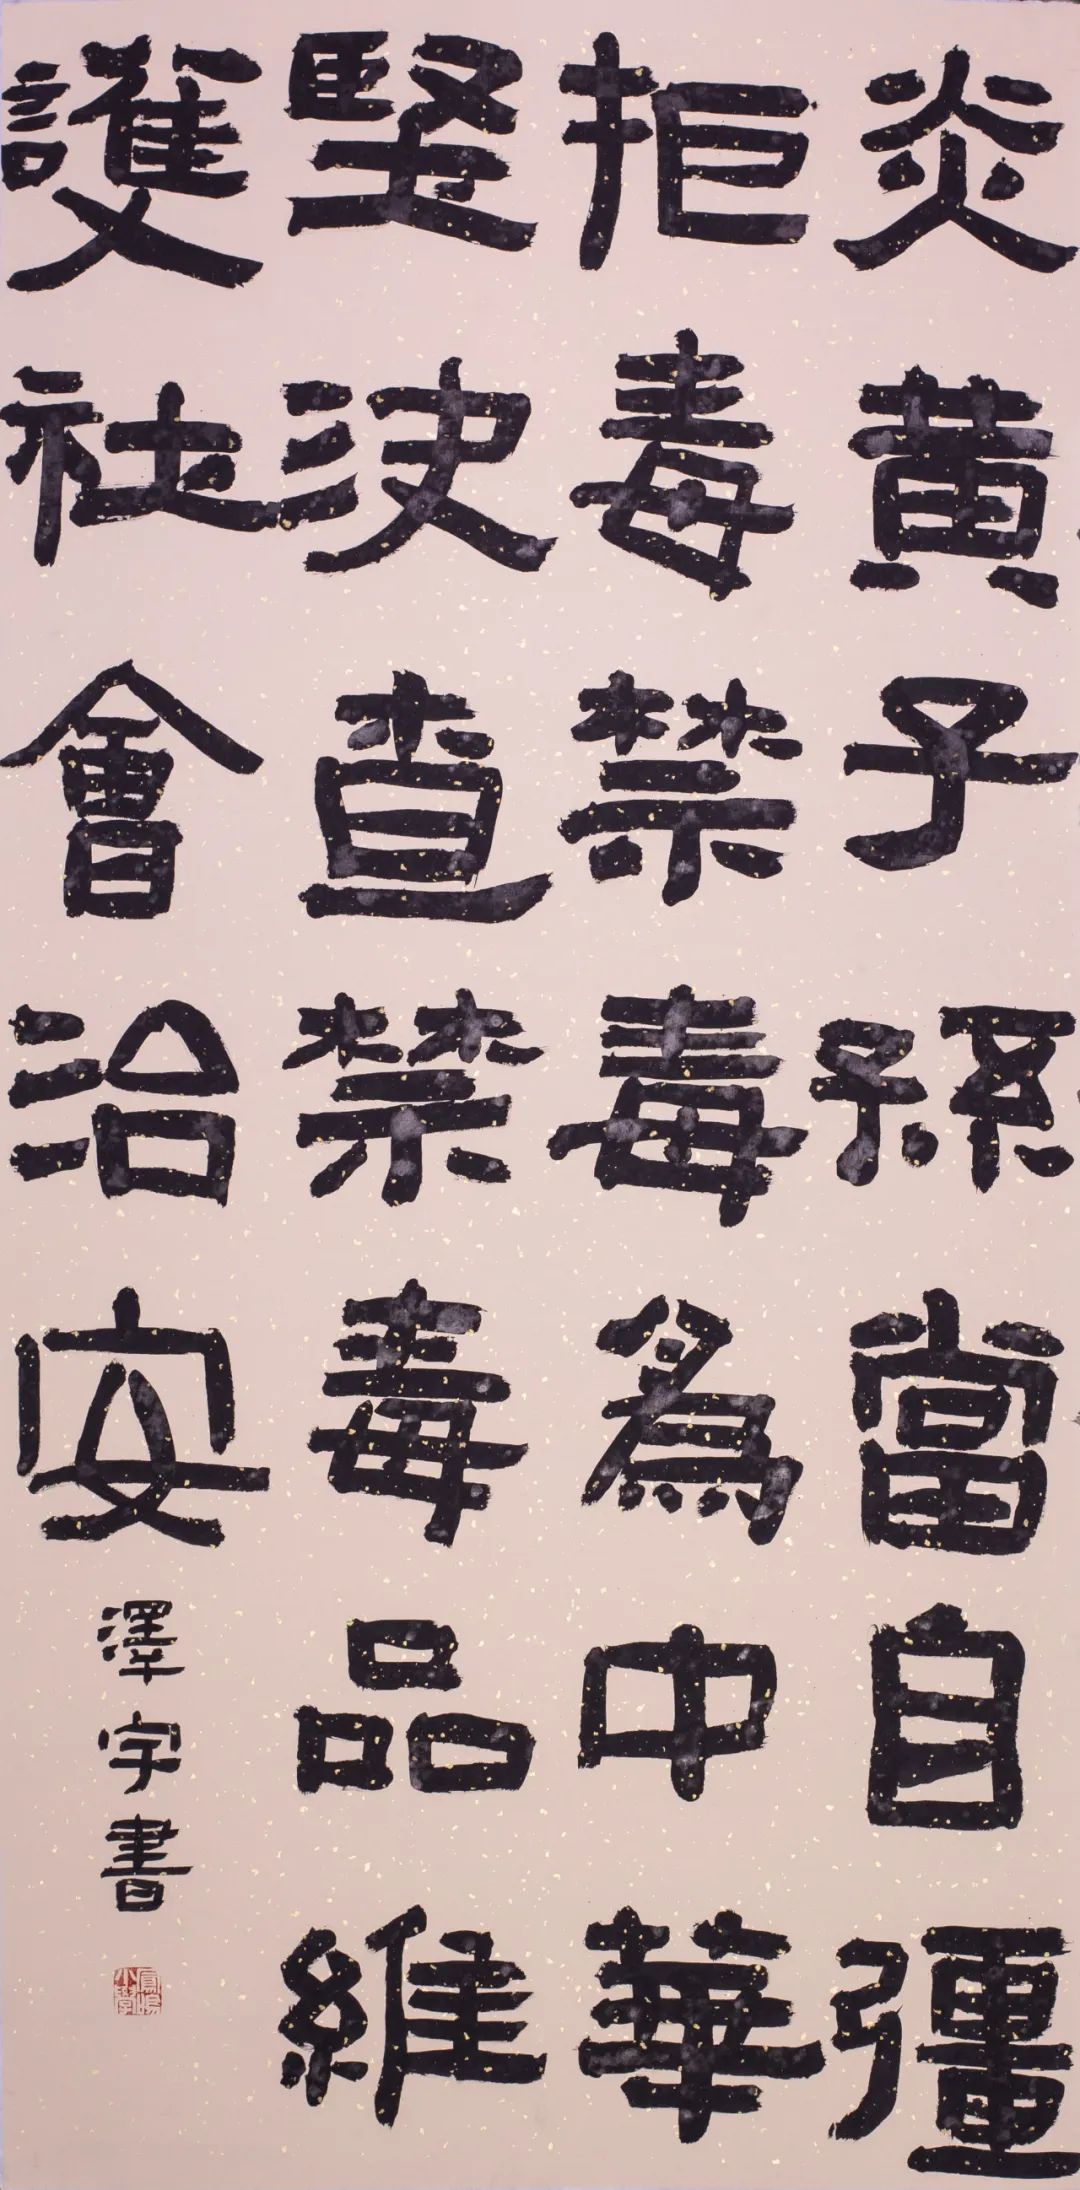 炎黃子孫當自彊
拒毒禁毒為中華
堅決查禁毒品維
護社會治安
澤宇書